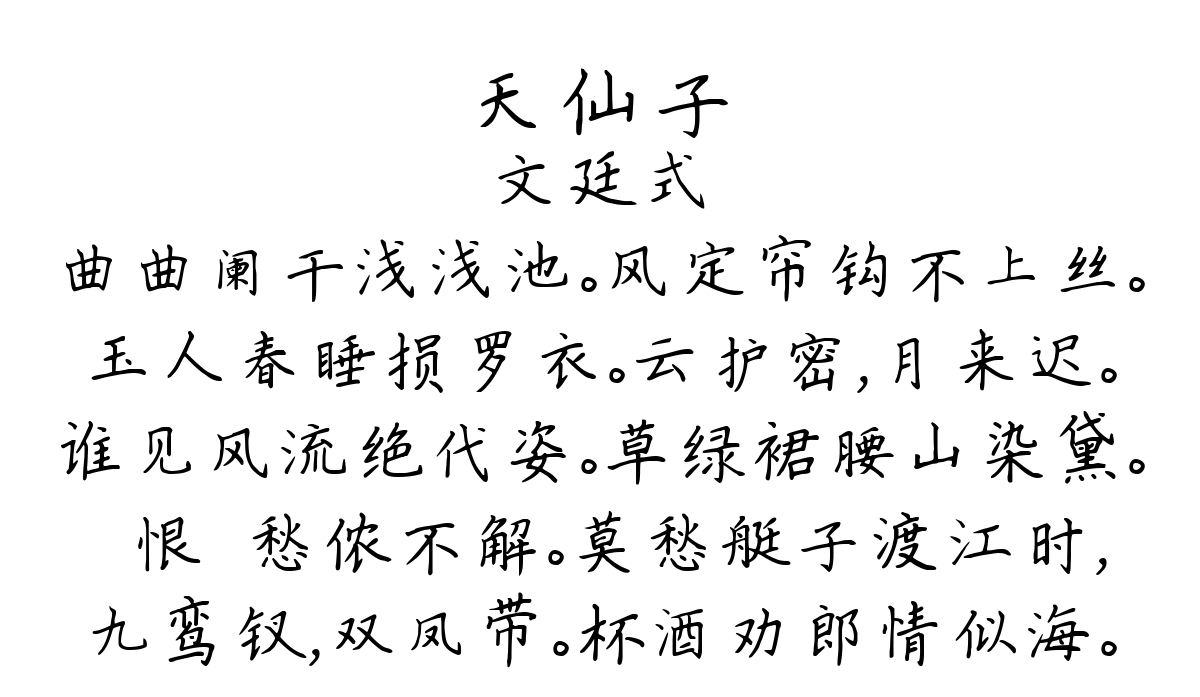 天仙子
文廷式
曲曲阑干浅浅池。风定帘钩不上丝。
玉人春睡损罗衣。云护密,月来迟。
谁见风流绝代姿。草绿裙腰山染黛。
恨 愁侬不解。莫愁艇子渡江时,
九鸾钗,双凤带。杯酒劝郎情似海。